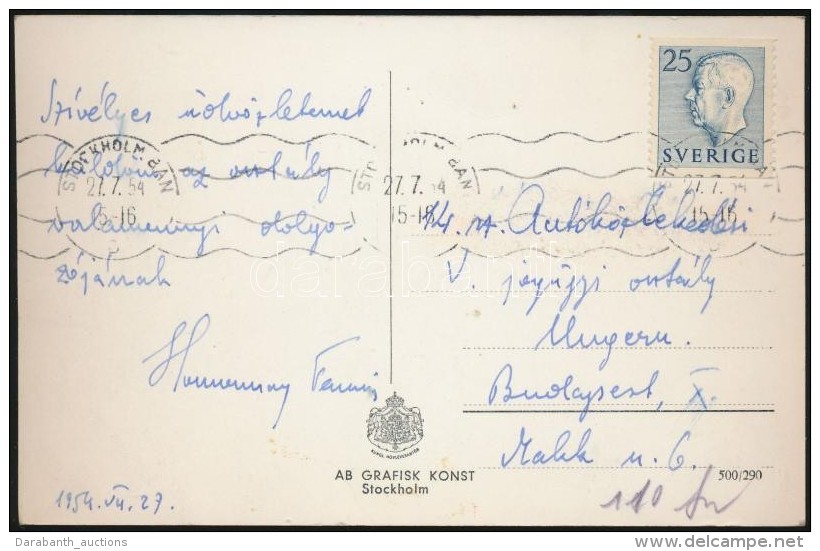 Szívélyes üdvözletemet
küldöm az osztály
valamennyi dolgo-
zójának
1954. VII. 27.
25
SVERIGE
STOCKHOLM BAN
27.7.54
15-16
STOCKHOLM BAN
27.7.54
15-16
27.7.54
15-16
Autóközlekedési
V. jogügyi osztály
Ungern.
Budapest, X.
u. 6.
KUNGL. HOVLEVERANTÖR
AB GRAFISK KONST
Stockholm
500/290
110
darabanth
Darabanth_auctions
www.delcampe.net